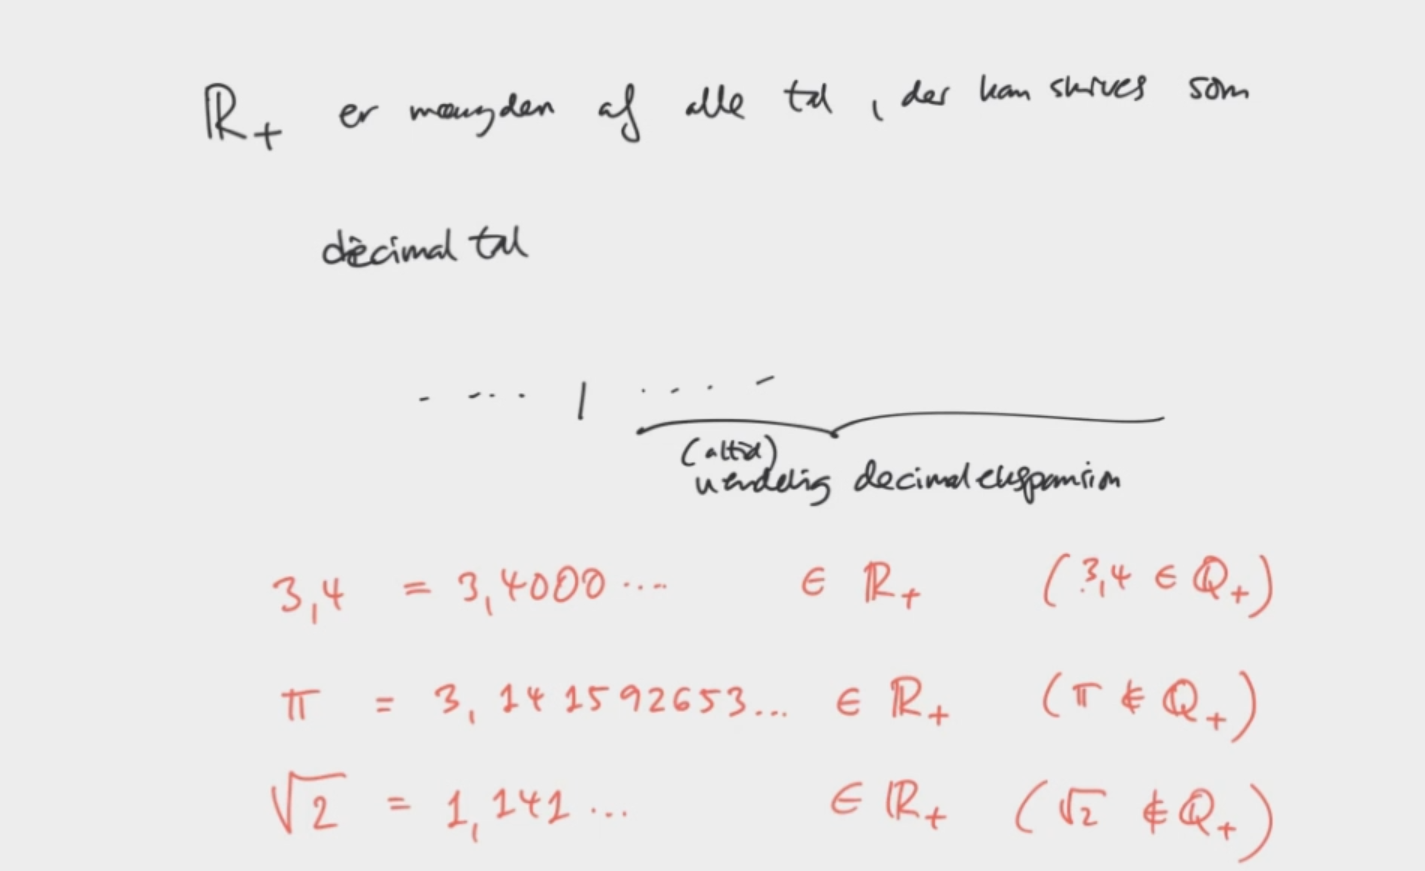 ℝ₊ er mængden af alle tal, der kan skrives som
decimal tal
.... , ....
(altid)
uendelig decimalekspansion
3,4 = 3,4000.... ∈ ℝ₊ (3,4 ∈ ℚ₊)
π = 3,141592653... ∈ ℝ₊ (π ∉ ℚ₊)
√2 = 1,141... ∈ ℝ₊ (√2 ∉ ℚ₊)